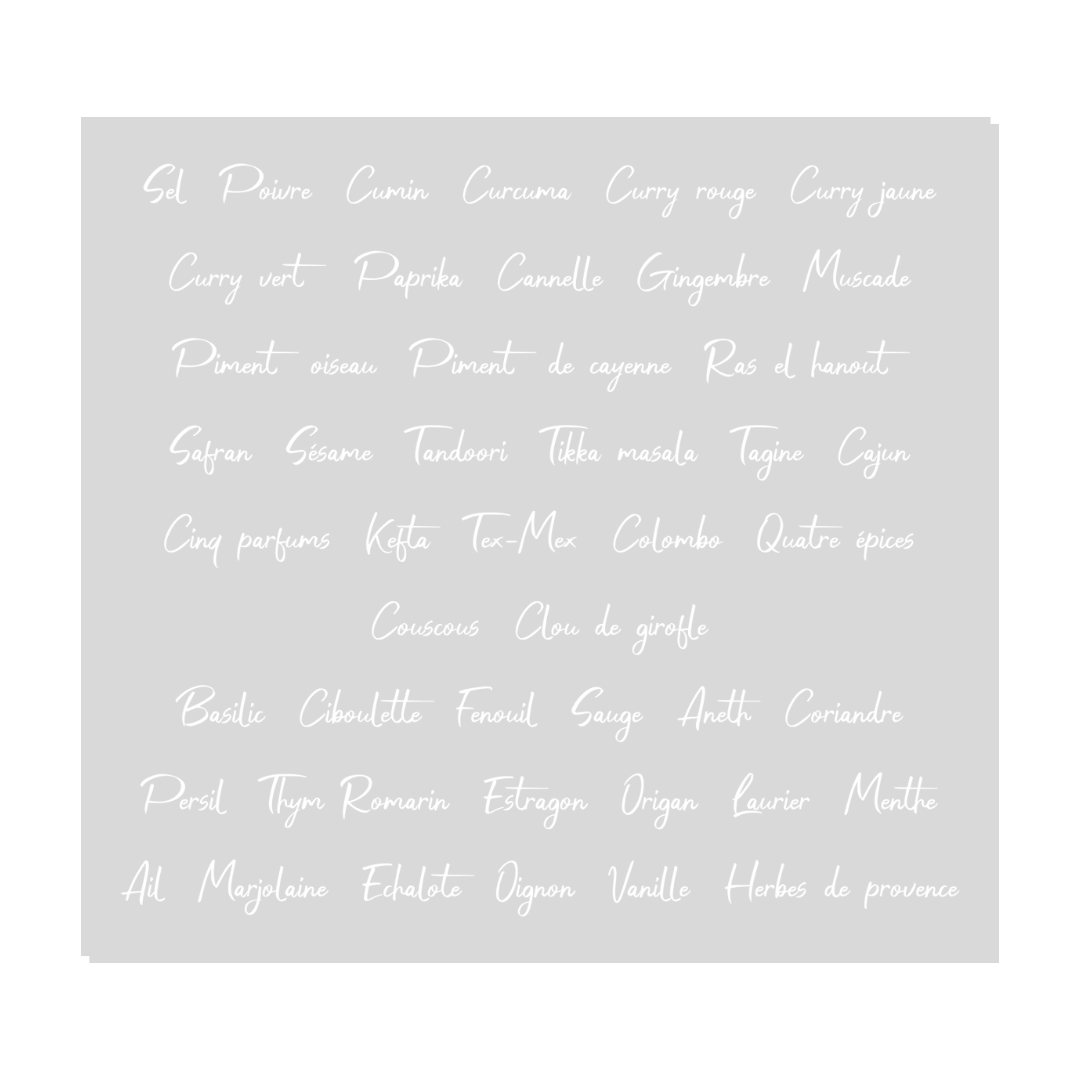 Sel Poivre Cumin Curcuma Curry rouge Curry jaune
Curry vert Paprika Cannelle Gingembre Muscade
Piment oiseau Piment de cayenne Ras el hanout
Safran Sésame Tandoori Tikka masala Tagine Cajun
Cinq parfums Kefta Tex-Mex Colombo Quatre épices
Couscous Clou de girofle
Basilic Ciboulette Fenouil Sauge Aneth Coriandre
Persil Thym Romarin Estragon Origan Laurier Menthe
Ail Marjolaine Echalote Oignon Vanille Herbes de provence